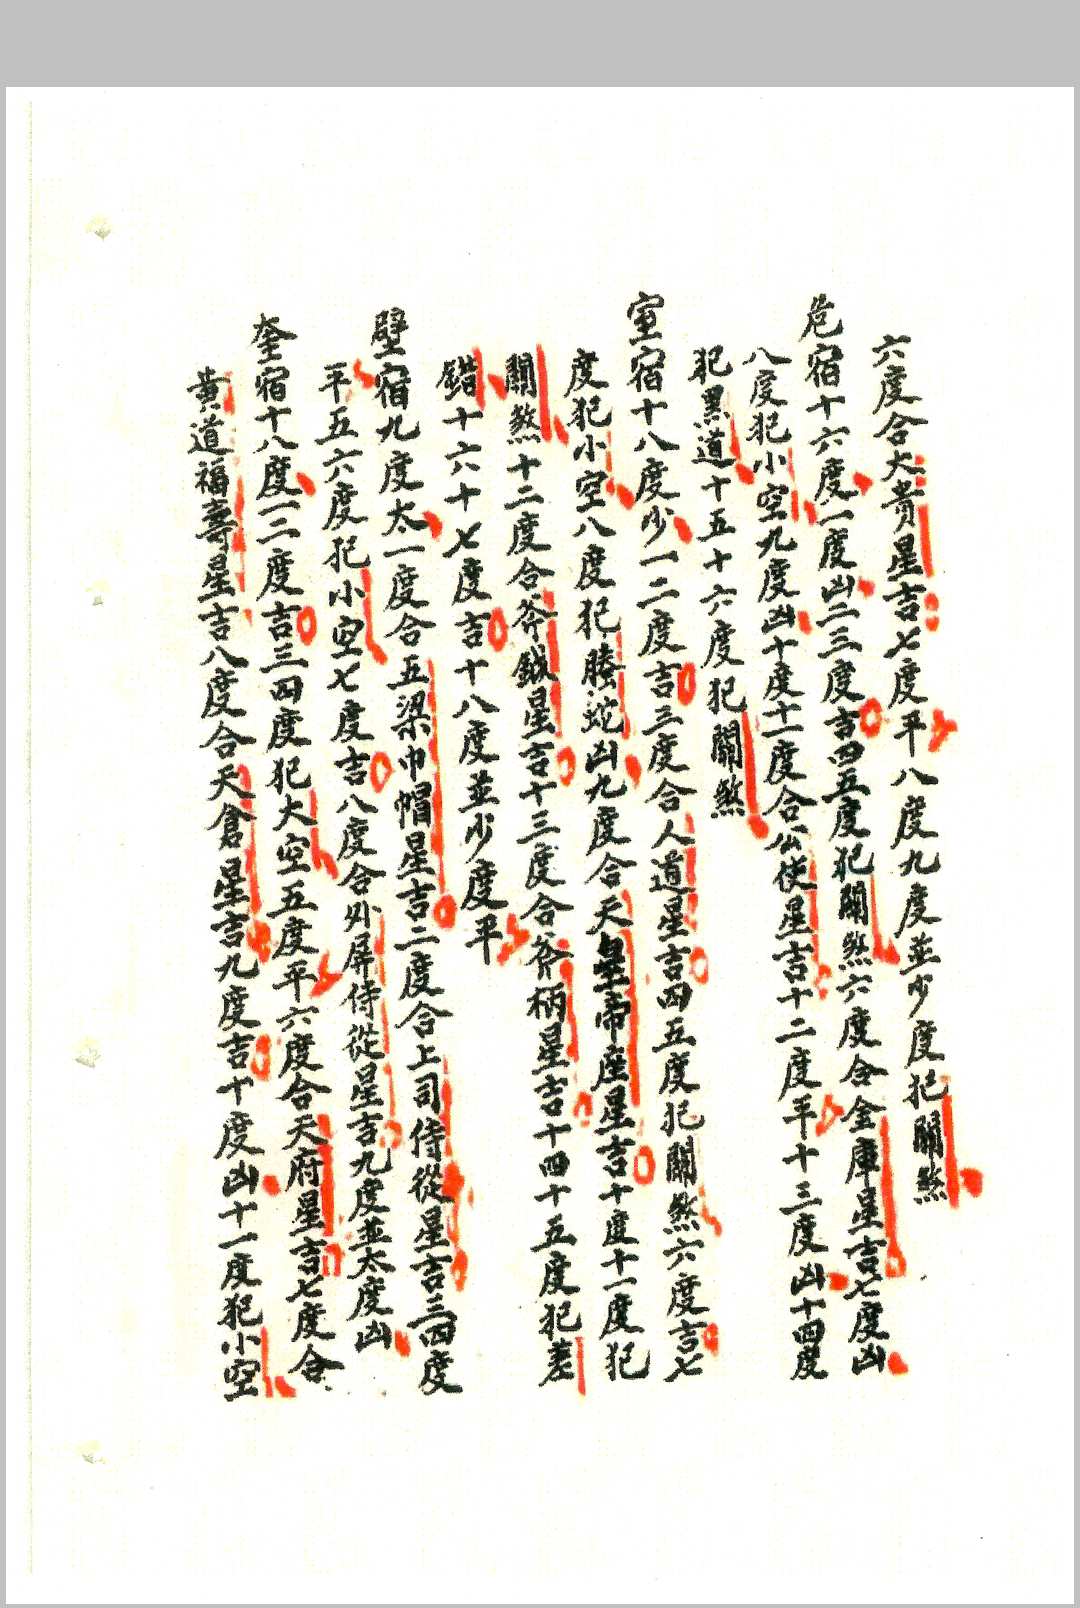 六度合大貴星吉七度平八度九度並少度犯關煞
危宿十六度一度凶二三度吉四五度犯關煞六度合金庫星吉七度凶
八度犯小空九度凶十度十一度合公使星吉十二度平十三度凶十四度
犯黑道十五十六度犯關煞
室宿十八度少一二度吉三度合人道星吉四五度犯關煞六度吉七
度犯小空八度犯螣蛇凶九度合天皇帝座星吉十度十一度犯
關煞十二度合斧鉞星吉十三度合斧柄星吉十四十五度犯差
錯十六十七度吉十八度並少度平
壁宿九度太一度合五梁巾帽星吉二度合上司侍從星吉三四度
平五六度犯小空七度吉八度合外屏侍從星吉九度並太度凶
奎宿十八度一二度吉三四度犯大空五度平六度合天府星吉七度合
黃道福壽星吉八度合天倉星吉九度吉十度凶十一度犯小空